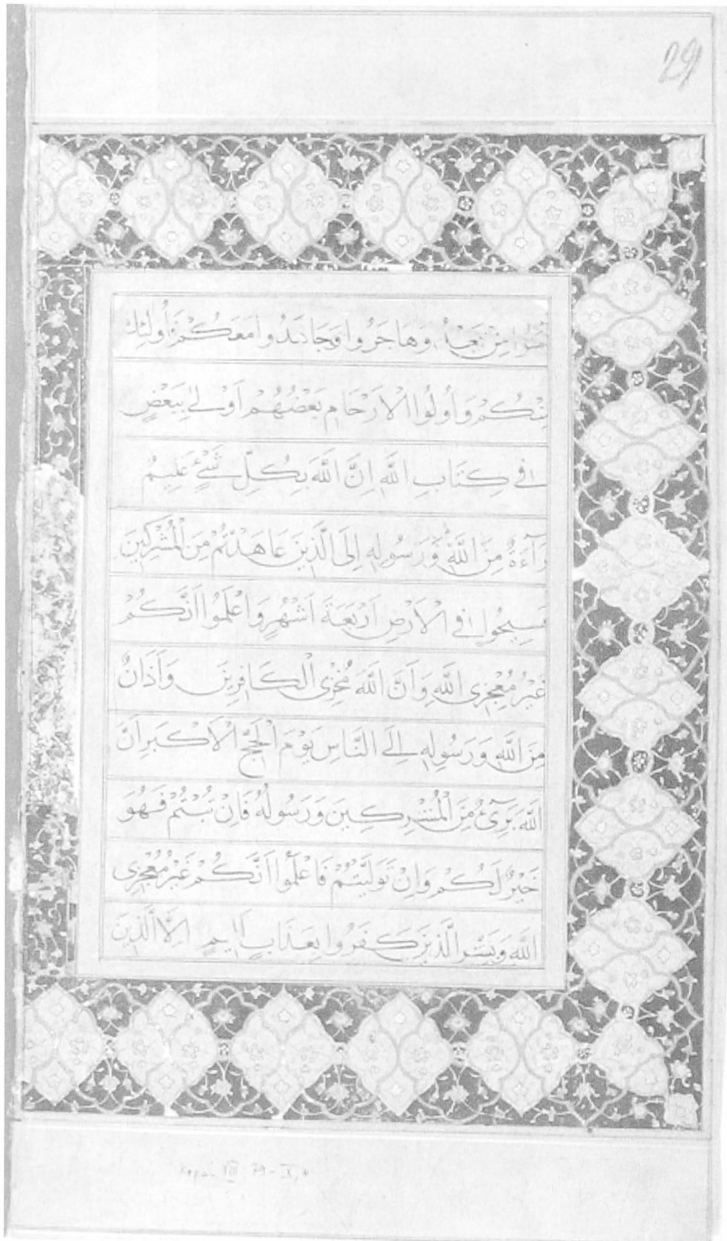 29
آمَنُوا مِنْ بَعْدُ وَهَاجَرُوا وَجَاهَدُوا مَعَكُمْ فَأُولَئِكَ
مِنْكُمْ وَأُولُوا الْاَرْحَامِ بَعْضُهُمْ اَوْلٰى بِبَعْضٍ
فِي كِتَابِ اللّٰهِ اِنَّ اللّٰهَ بِكُلِّ شَيْءٍ عَلِيمٌ
بَرَآءَةٌ مِنَ اللّٰهِ وَرَسُولِهِ اِلَى الَّذِينَ عَاهَدْتُمْ مِنَ الْمُشْرِكِينَ
فَسِيحُوا فِي الْاَرْضِ اَرْبَعَةَ اَشْهُرٍ وَاعْلَمُوا اَنَّكُمْ
غَيْرُ مُعْجِزِى اللّٰهِ وَاَنَّ اللّٰهَ مُخْزِى الْكَافِرِينَ وَاَذَانٌ
مِنَ اللّٰهِ وَرَسُولِهِ اِلَى النَّاسِ يَوْمَ الْحَجِّ الْاَكْبَرِ اَنَّ
اللّٰهَ بَرِىءٌ مِنَ الْمُشْرِكِينَ وَرَسُولُهُ فَاِنْ تُبْتُمْ فَهُوَ
خَيْرٌ لَكُمْ وَاِنْ تَوَلَّيْتُمْ فَاعْلَمُوا اَنَّكُمْ غَيْرُ مُعْجِزِى
اللّٰهِ وَبَشِّرِ الَّذِينَ كَفَرُوا بِعَذَابٍ اَلِيمٍ اِلَّا الَّذِينَ